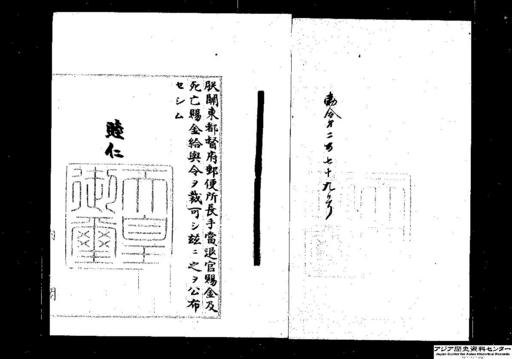 勅令第二百七十九号
朕關東都督府郵便所長手當退官賜金及
死亡賜金給與令ヲ裁可シ茲ニ之ヲ公布
セシム
睦仁
天皇御璽
内閣
アジア歴史資料センター
Japan Center for Asian Historical Records